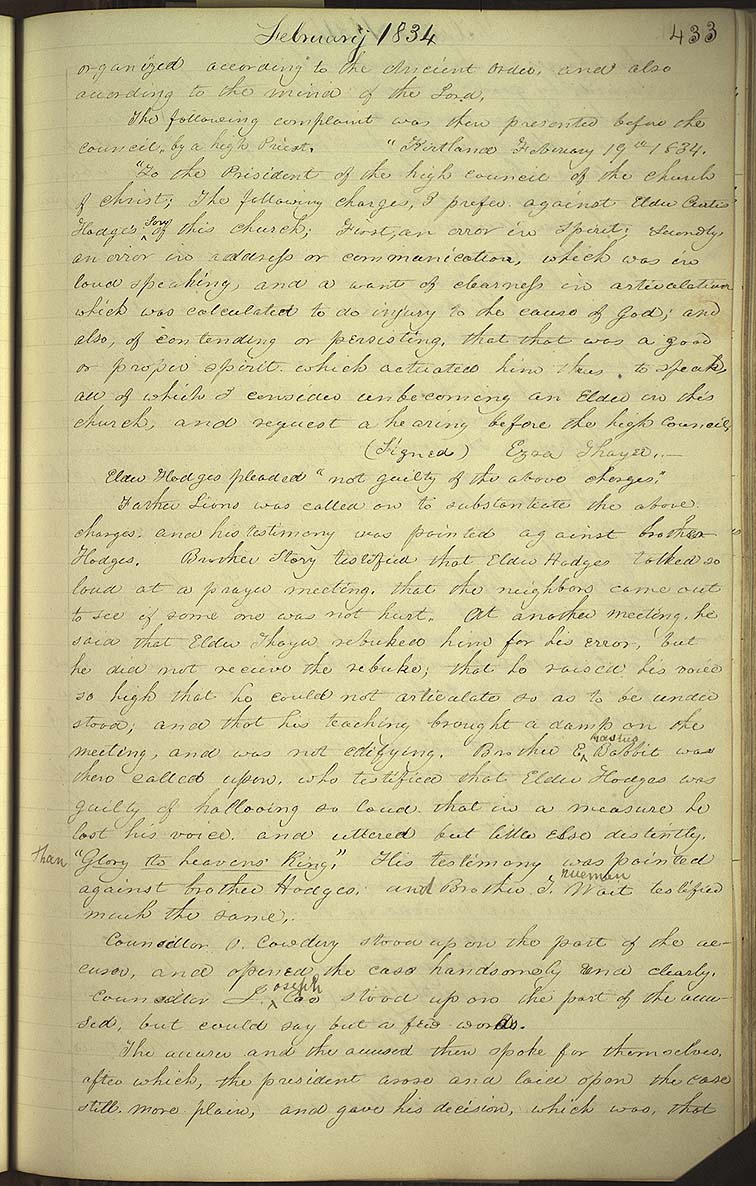 February 1834 433
organized according to the Ancient order, and also
according to the mind of the Lord.
The following complaint was then presented before the
council, by a high Priest. "Kirtland February 19th 1834.
"To the President of the high council of the church
of christ; The following charges, I prefer against Elder Curtis
Hodges Senr of this church; First, an error in spirit; secondly,
an error in address or communication, which was in
loud speaking, and a want of clearness in articulation
which was calculated to do injury to the cause of God; and
also, of contending or persisting, that that was a good
or proper spirit which actuated him thus to speak,
all of which I consider unbecoming an Elder in this
church, and request a hearing before the high council,
(Signed) Ezra Thayer.—
Elder Hodges pleaded "not guilty of the above charges,"
Father Lions was called on to substantiate the above
charges, and his testimony was pointed against brother
Hodges. Brother Story testified that Elder Hodges talked so
loud at a prayer meeting, that the neighbors came out
to see if some one was not hurt. At another meeting, he
said that Elder Thayer rebuked him for his error, but
he did not recieve the rebuke; that he raised his voice
so high that he could not articulate so as to be under
stood; and that his teaching brought a damp on the
meeting, and was not edifying. Brother Erastus Babbit was
then called upon, who testified that Elder Hodges was
guilty of hallooing so loud that in a measure he
lost his voice, and uttered but little else distently,
than "Glory to heavens King," His testimony was pointed
against brother Hodges, and Brother Trueman Wait testified
much the same,.
Councellor O. Cowdery stood up on the part of the ac-
cuser, and opened the case handsomely and clearly.
Councellor Joseph Coe stood up on the part of the accu-
sed, but could say but a few words.
The accuser and the accused then spoke for themselves,
after which, the president arose and laid open the case
still more plain, and gave his decision, which was, that